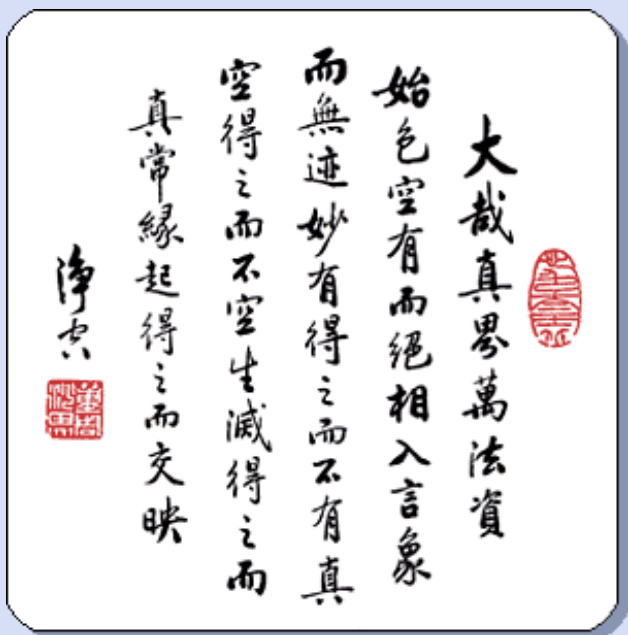 大哉真界萬法資
始包空有而絕相入言象
而無迹妙有得之而不有真
空得之而不空生滅得之而
真常緣起得之而交映
淨空